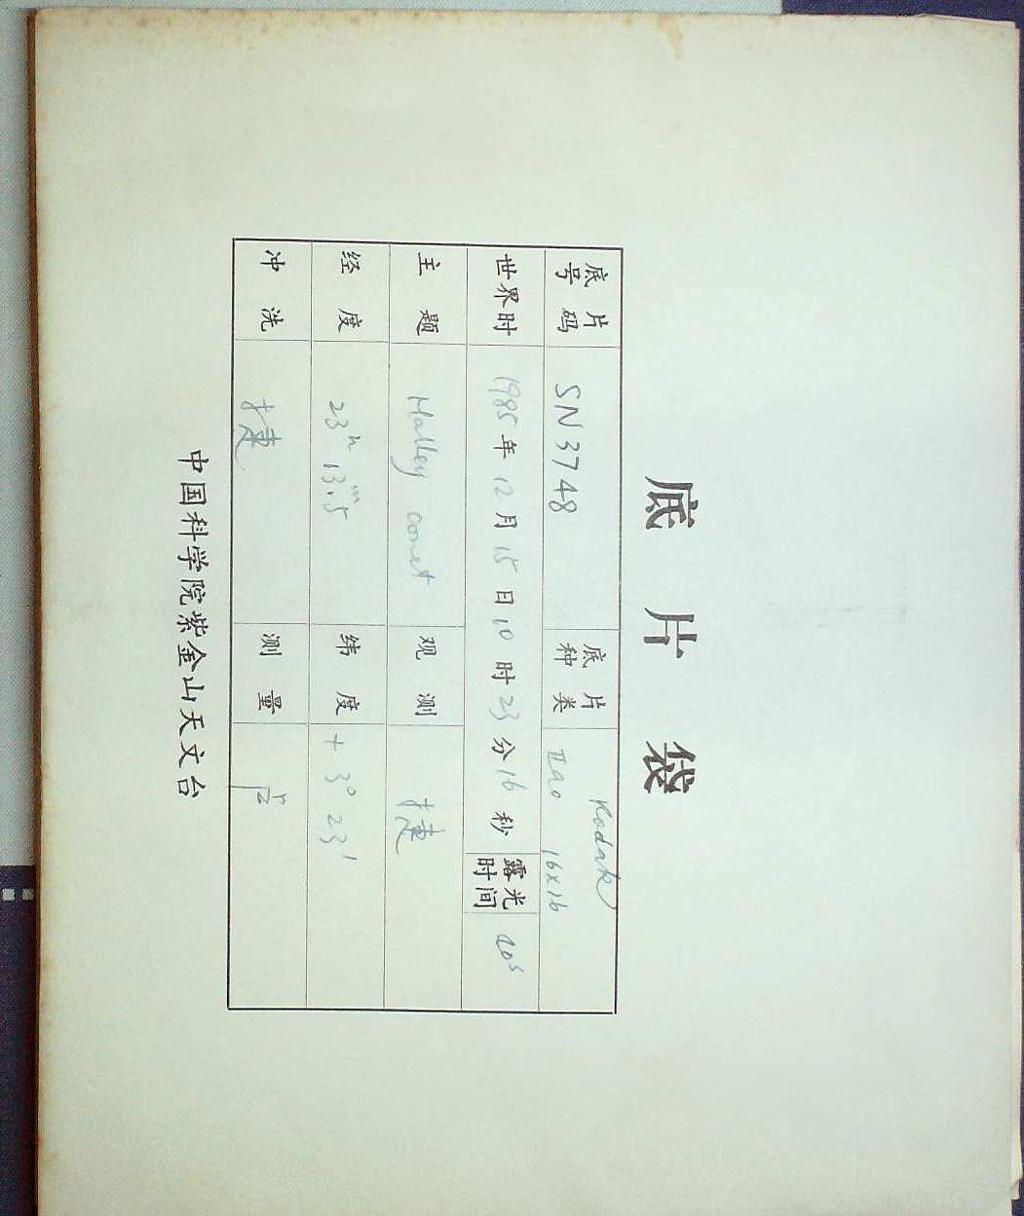 底片袋
底片号码 SN3748 底片种类 Kodak
IIaO 16×16
世界时 1985年12月15日10时23分16秒 露光时间 20s
主题 Halley comet 观测 捷
经度 23h 13.m5 纬度 +3° 23′
冲洗 捷 测量
中国科学院紫金山天文台